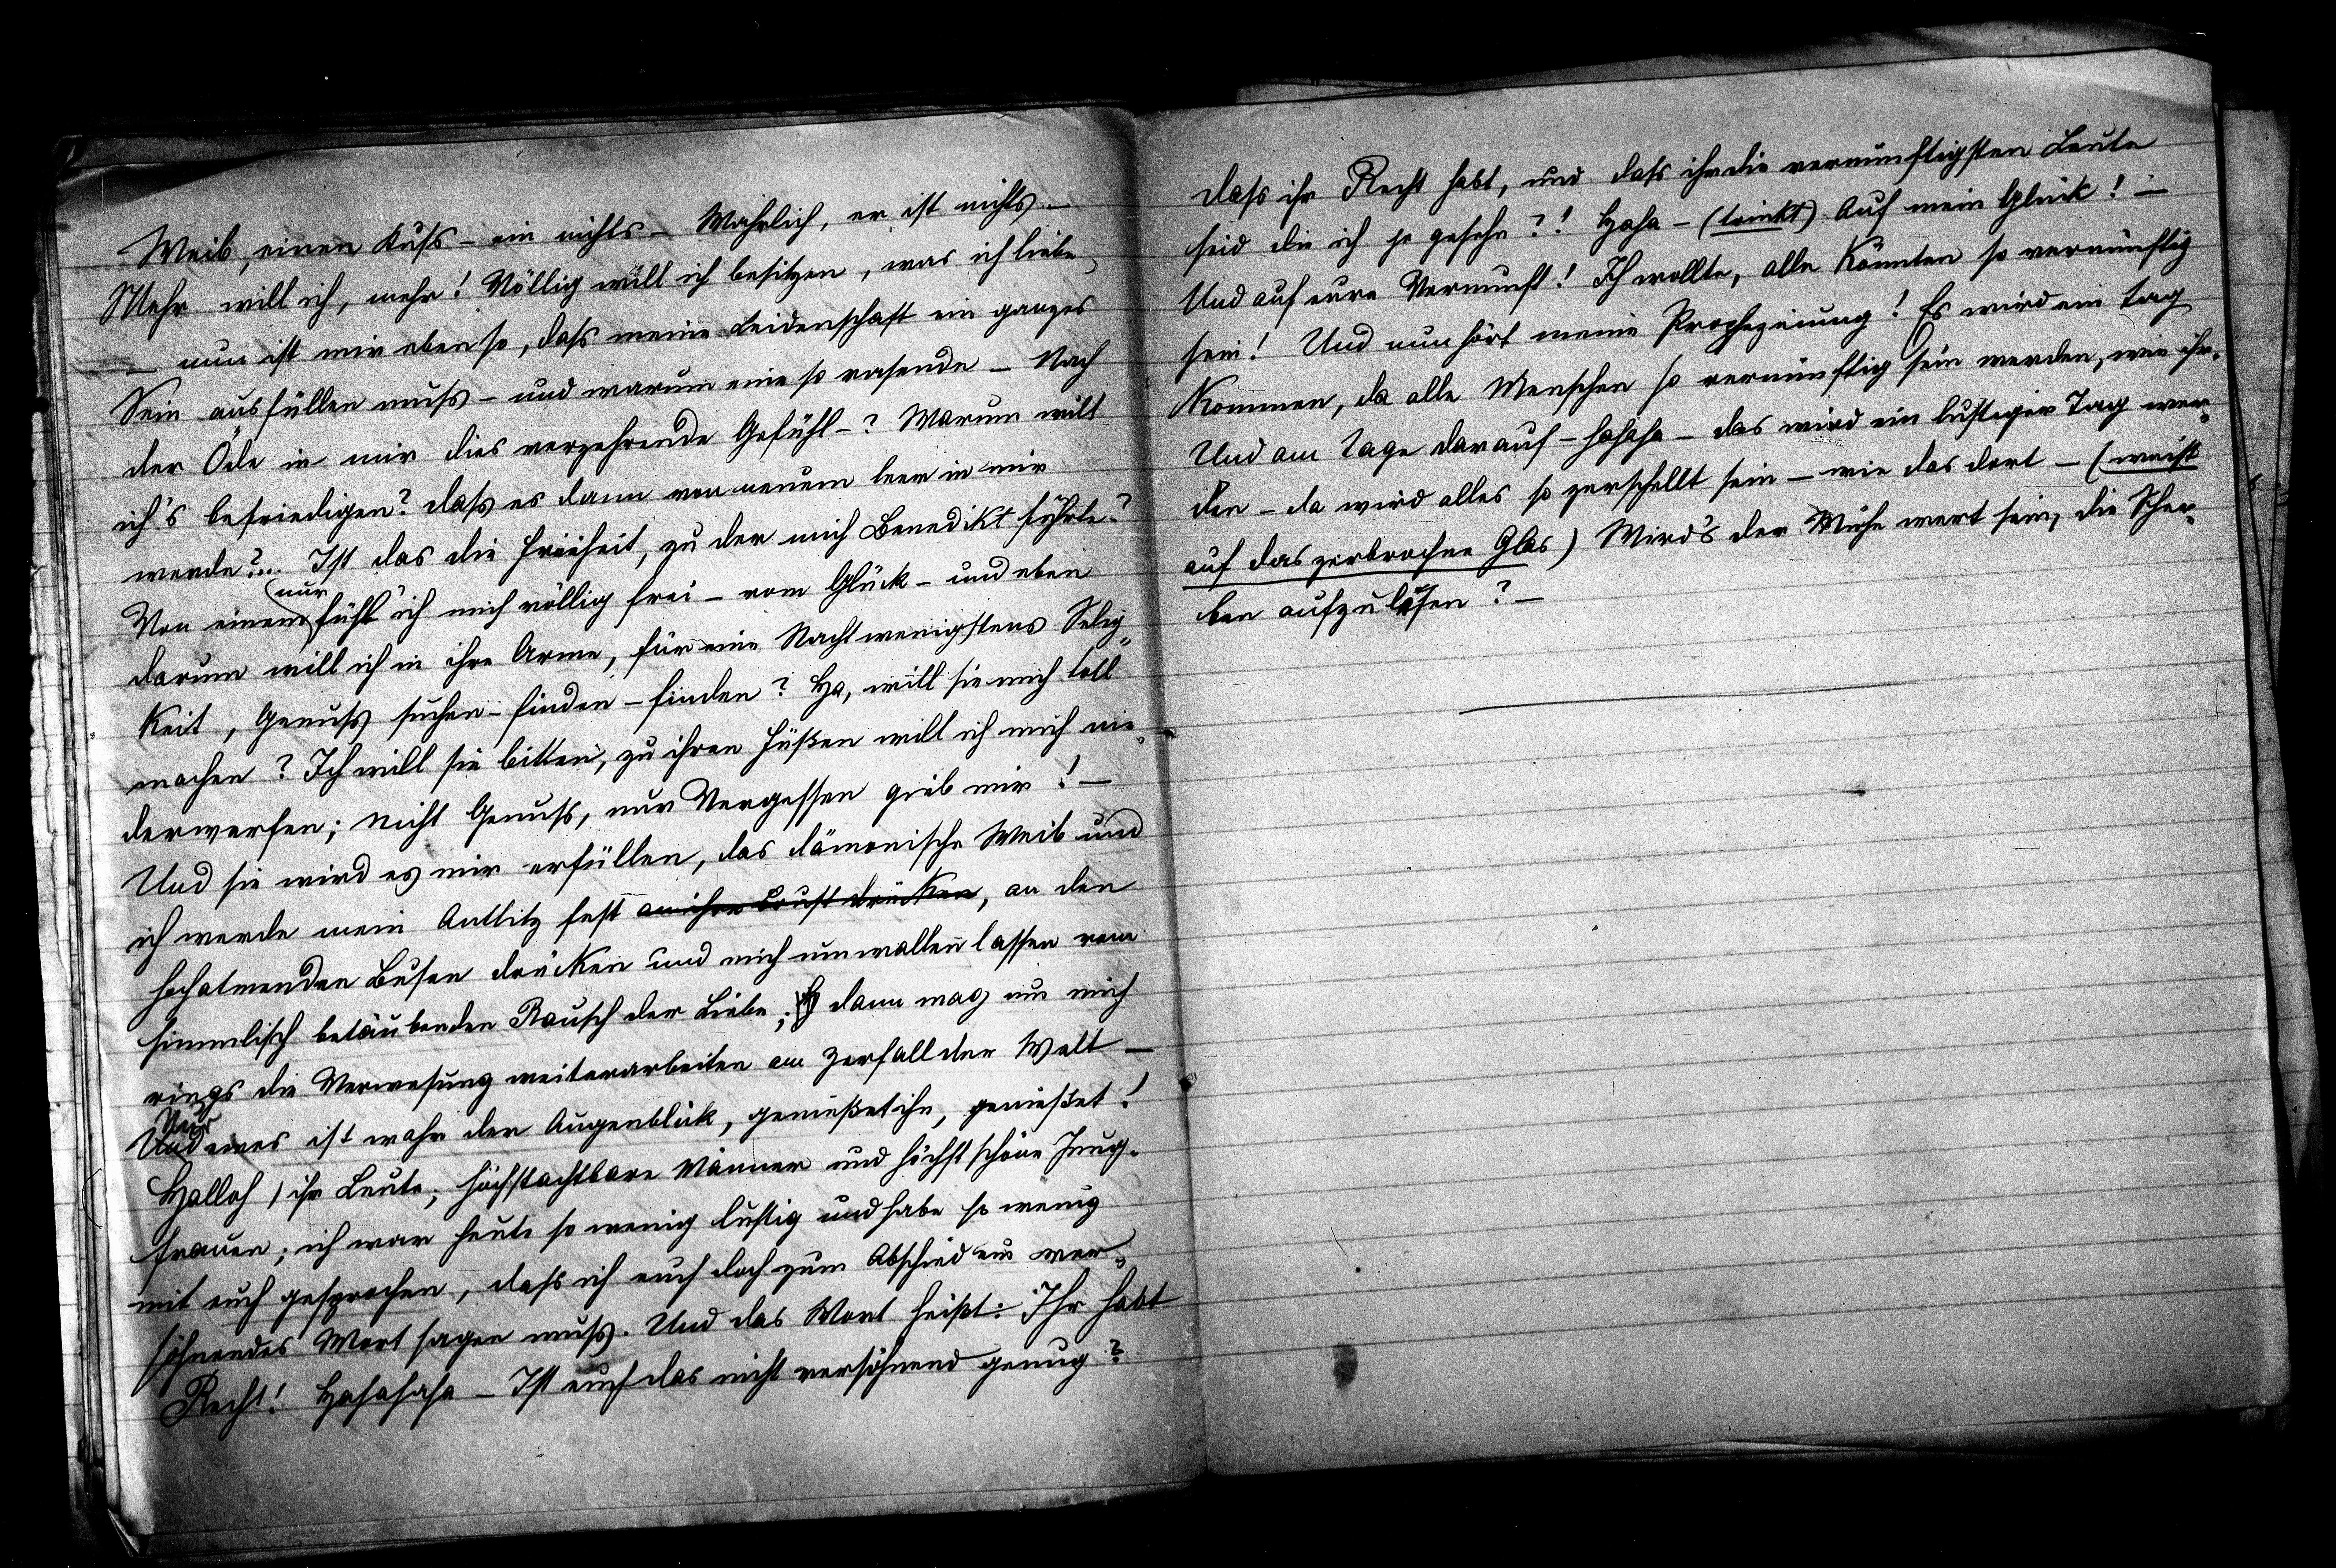 Weib, einen Kuss – ein nichts – Wahrlich, er ist nichts –
Mehr will ich, mehr! Völlig will ich besitzen, was ich liebe,
– nun ist mir eben so, dass meine Leidenschaft ein ganzes
Sein ausfüllen muss – und warum eine so rasende – Nach
der Öde in mir dies verzehrende Gefühl –? Warum will
ich's befriedigen? dass es dann von neuem leer in mir
werde?... Ist das die Freiheit, zu der mich Benedikt führte?
Von einem nur fühl ich mich völlig frei – vom Glück – und eben
darum will ich in ihre Arme, für eine Nacht wenigstens Selig-
keit, Genuss suchen – finden – finden? Ha, will sie mich toll
machen? Ich will sie bitten, zu ihren Füßen will ich mich nie-
derwerfen; nicht Genuss, nur Vergessen gieb mir! –
Und sie wird es mir erfüllen, das dämonische Weib und
ich werde mein Antlitz fest an ihre Brust drücken, an den
hochatmenden Busen drücken und mich umwallen lassen vom
himmlisch betäubenden Rausch der Liebe; dann mag um mich
rings die Verwesung weiterarbeiten am Zerfall der Welt –
Nur eines ist wahr der Augenblick, genießet ihn, genießet!
Halloh, ihr Leute, höchstachtbare Männer und höchst schöne Jung-
frauen; ich war heute so wenig lustig und habe so wenig
mit euch gesprochen, dass ich euch doch zum Abschied ein ver-
söhnendes Wort sagen muss. Und das Wort heißt: Ihr habt
Recht! Hahahaha – Ist euch das nicht versöhnend genug?
dass ihr Recht habt, und dass ihr die vernünftigsten Leute
seid die ich je gesehn?! Haha – (trinkt) Auf mein Glück! –
Und auf eure Vernunft! Ich wollte, alle könnten so vernünftig
sein! Und nun hört meine Prophezeiung! Es wird ein Tag
kommen, da alle Menschen so vernünftig sein werden, wie ihr.
Und am Tage darauf – hahaha – das wird ein lustiger Tag wer-
den – da wird alles so zerschellt sein – wie das dort – (weist
auf das zerbrochne Glas) Wird's der Mühe wert sein, die Scher-
ben aufzulesen? –